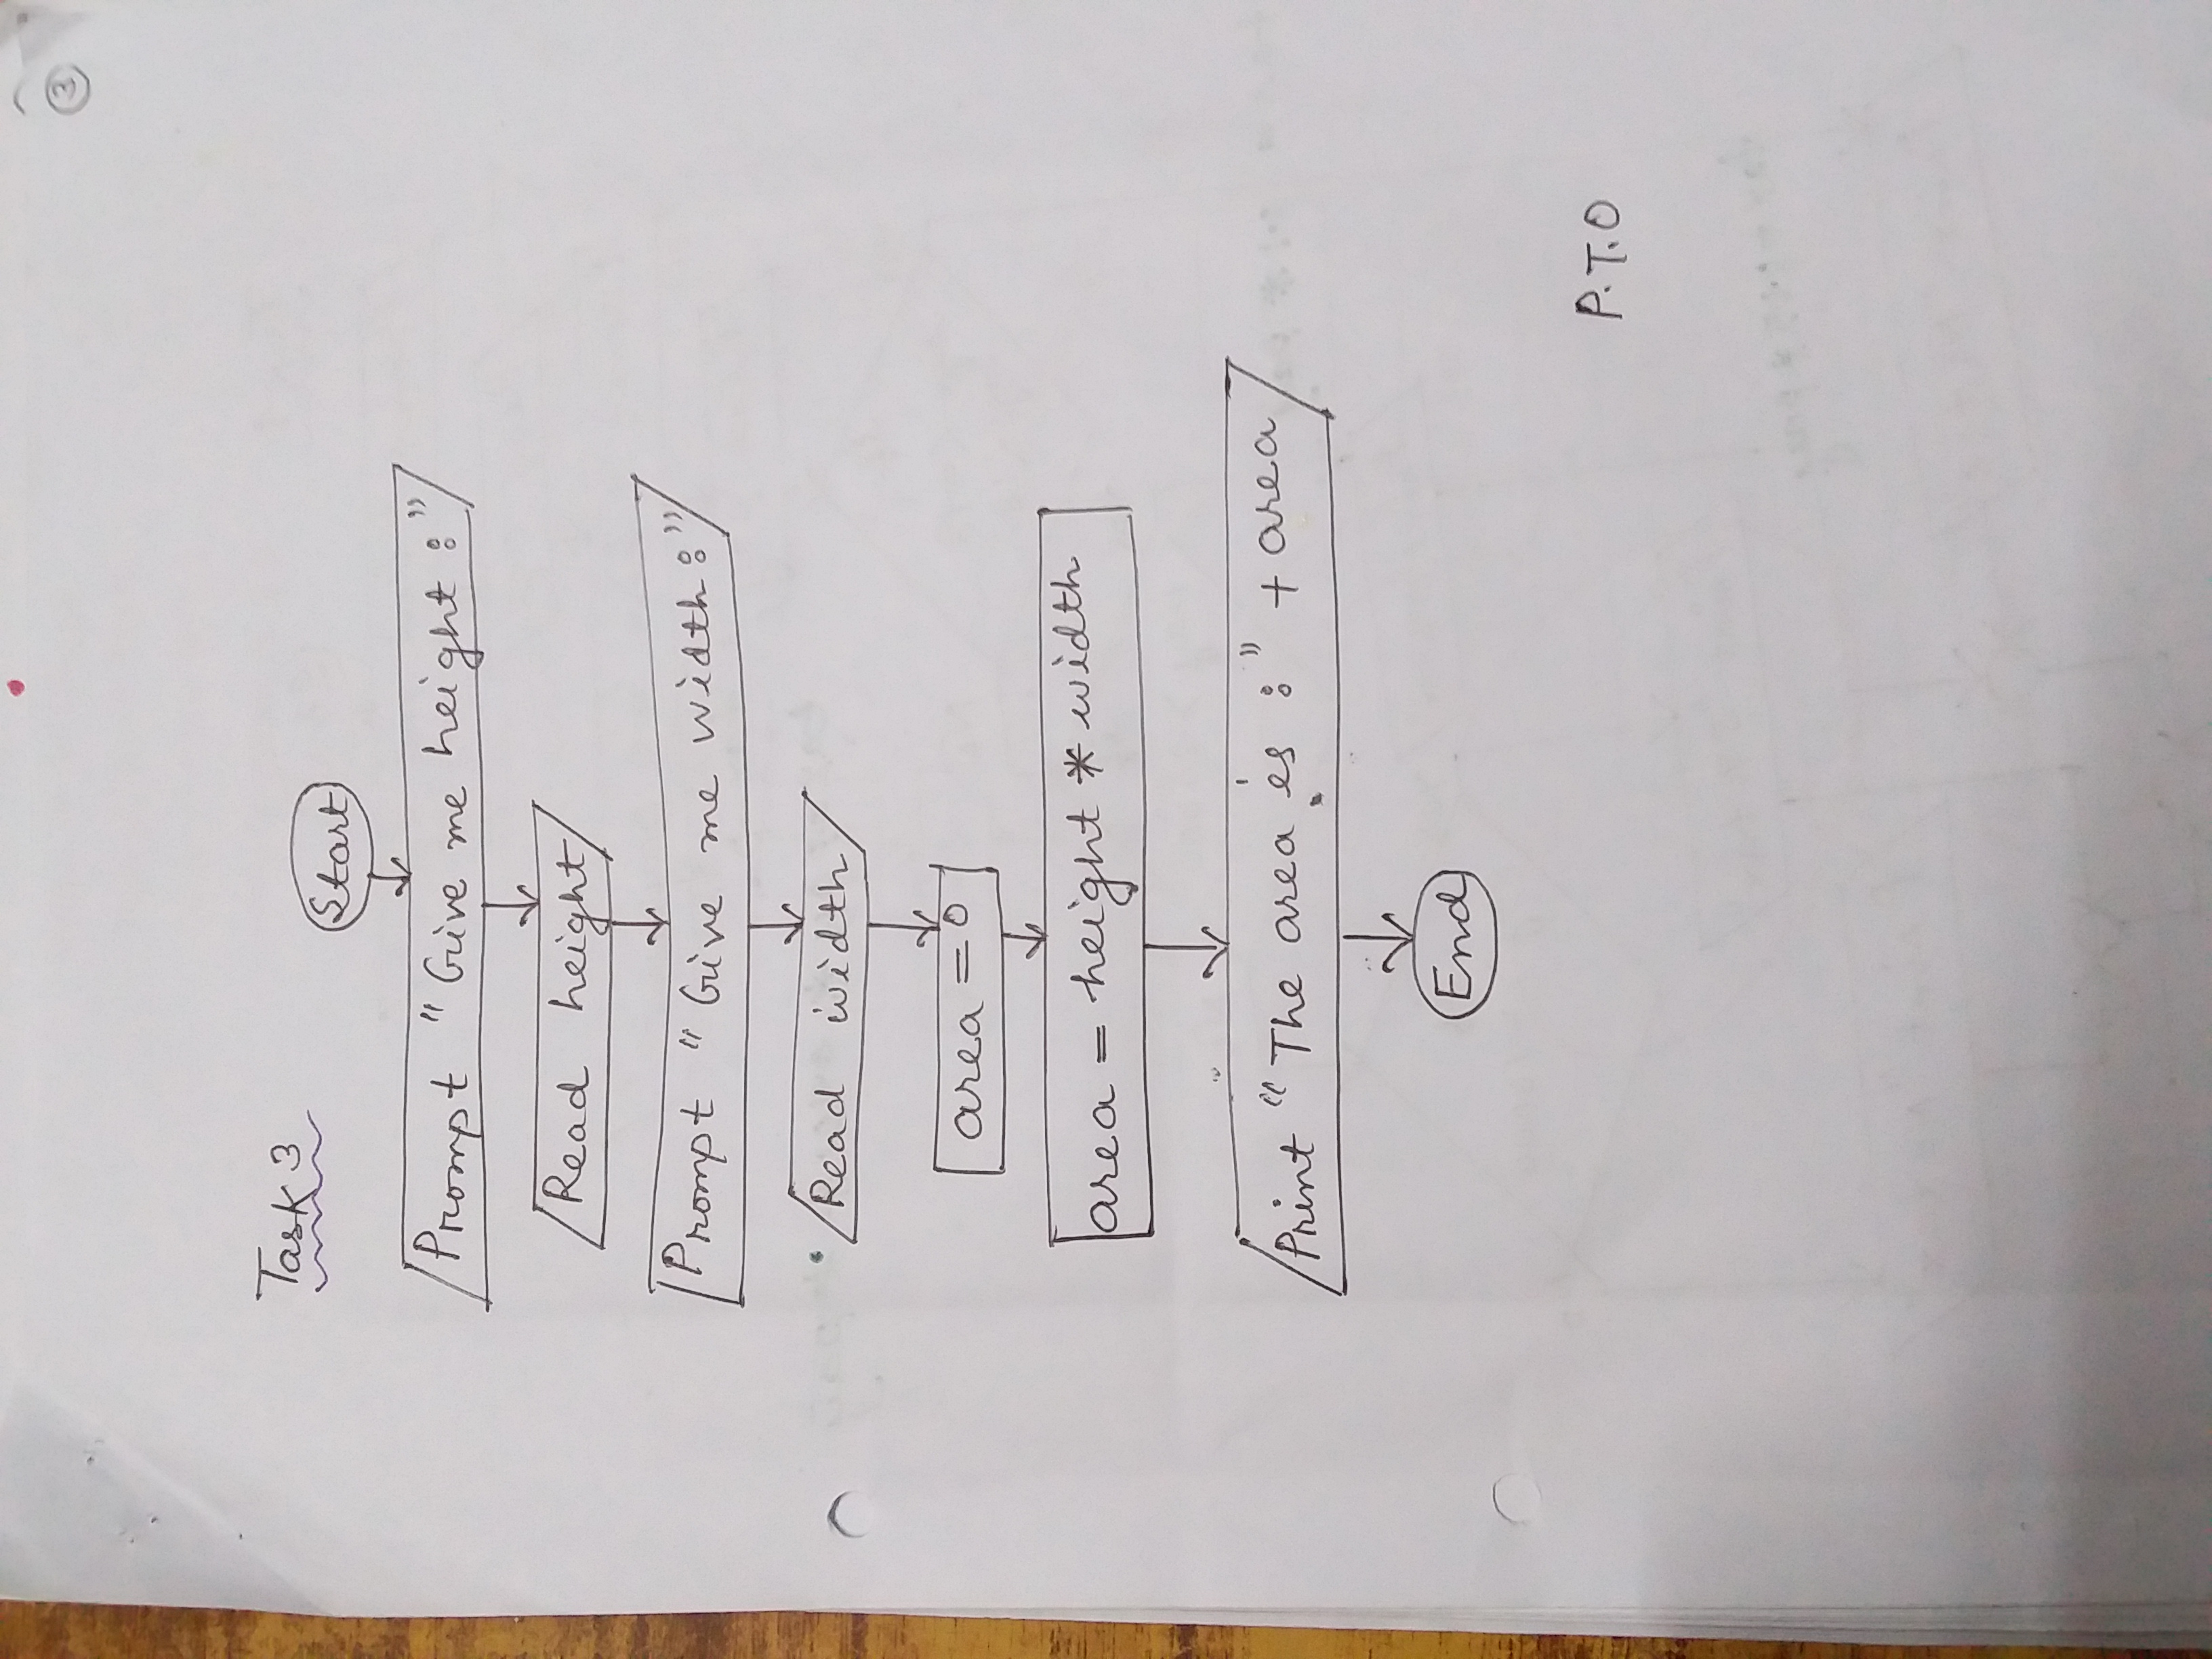 3
Task 3
Start
Prompt " Give me height : "
Read height
Prompt " Give me width : "
Read width
area = 0
area = height * width
Print " The area is : " + area
End
P.T.O